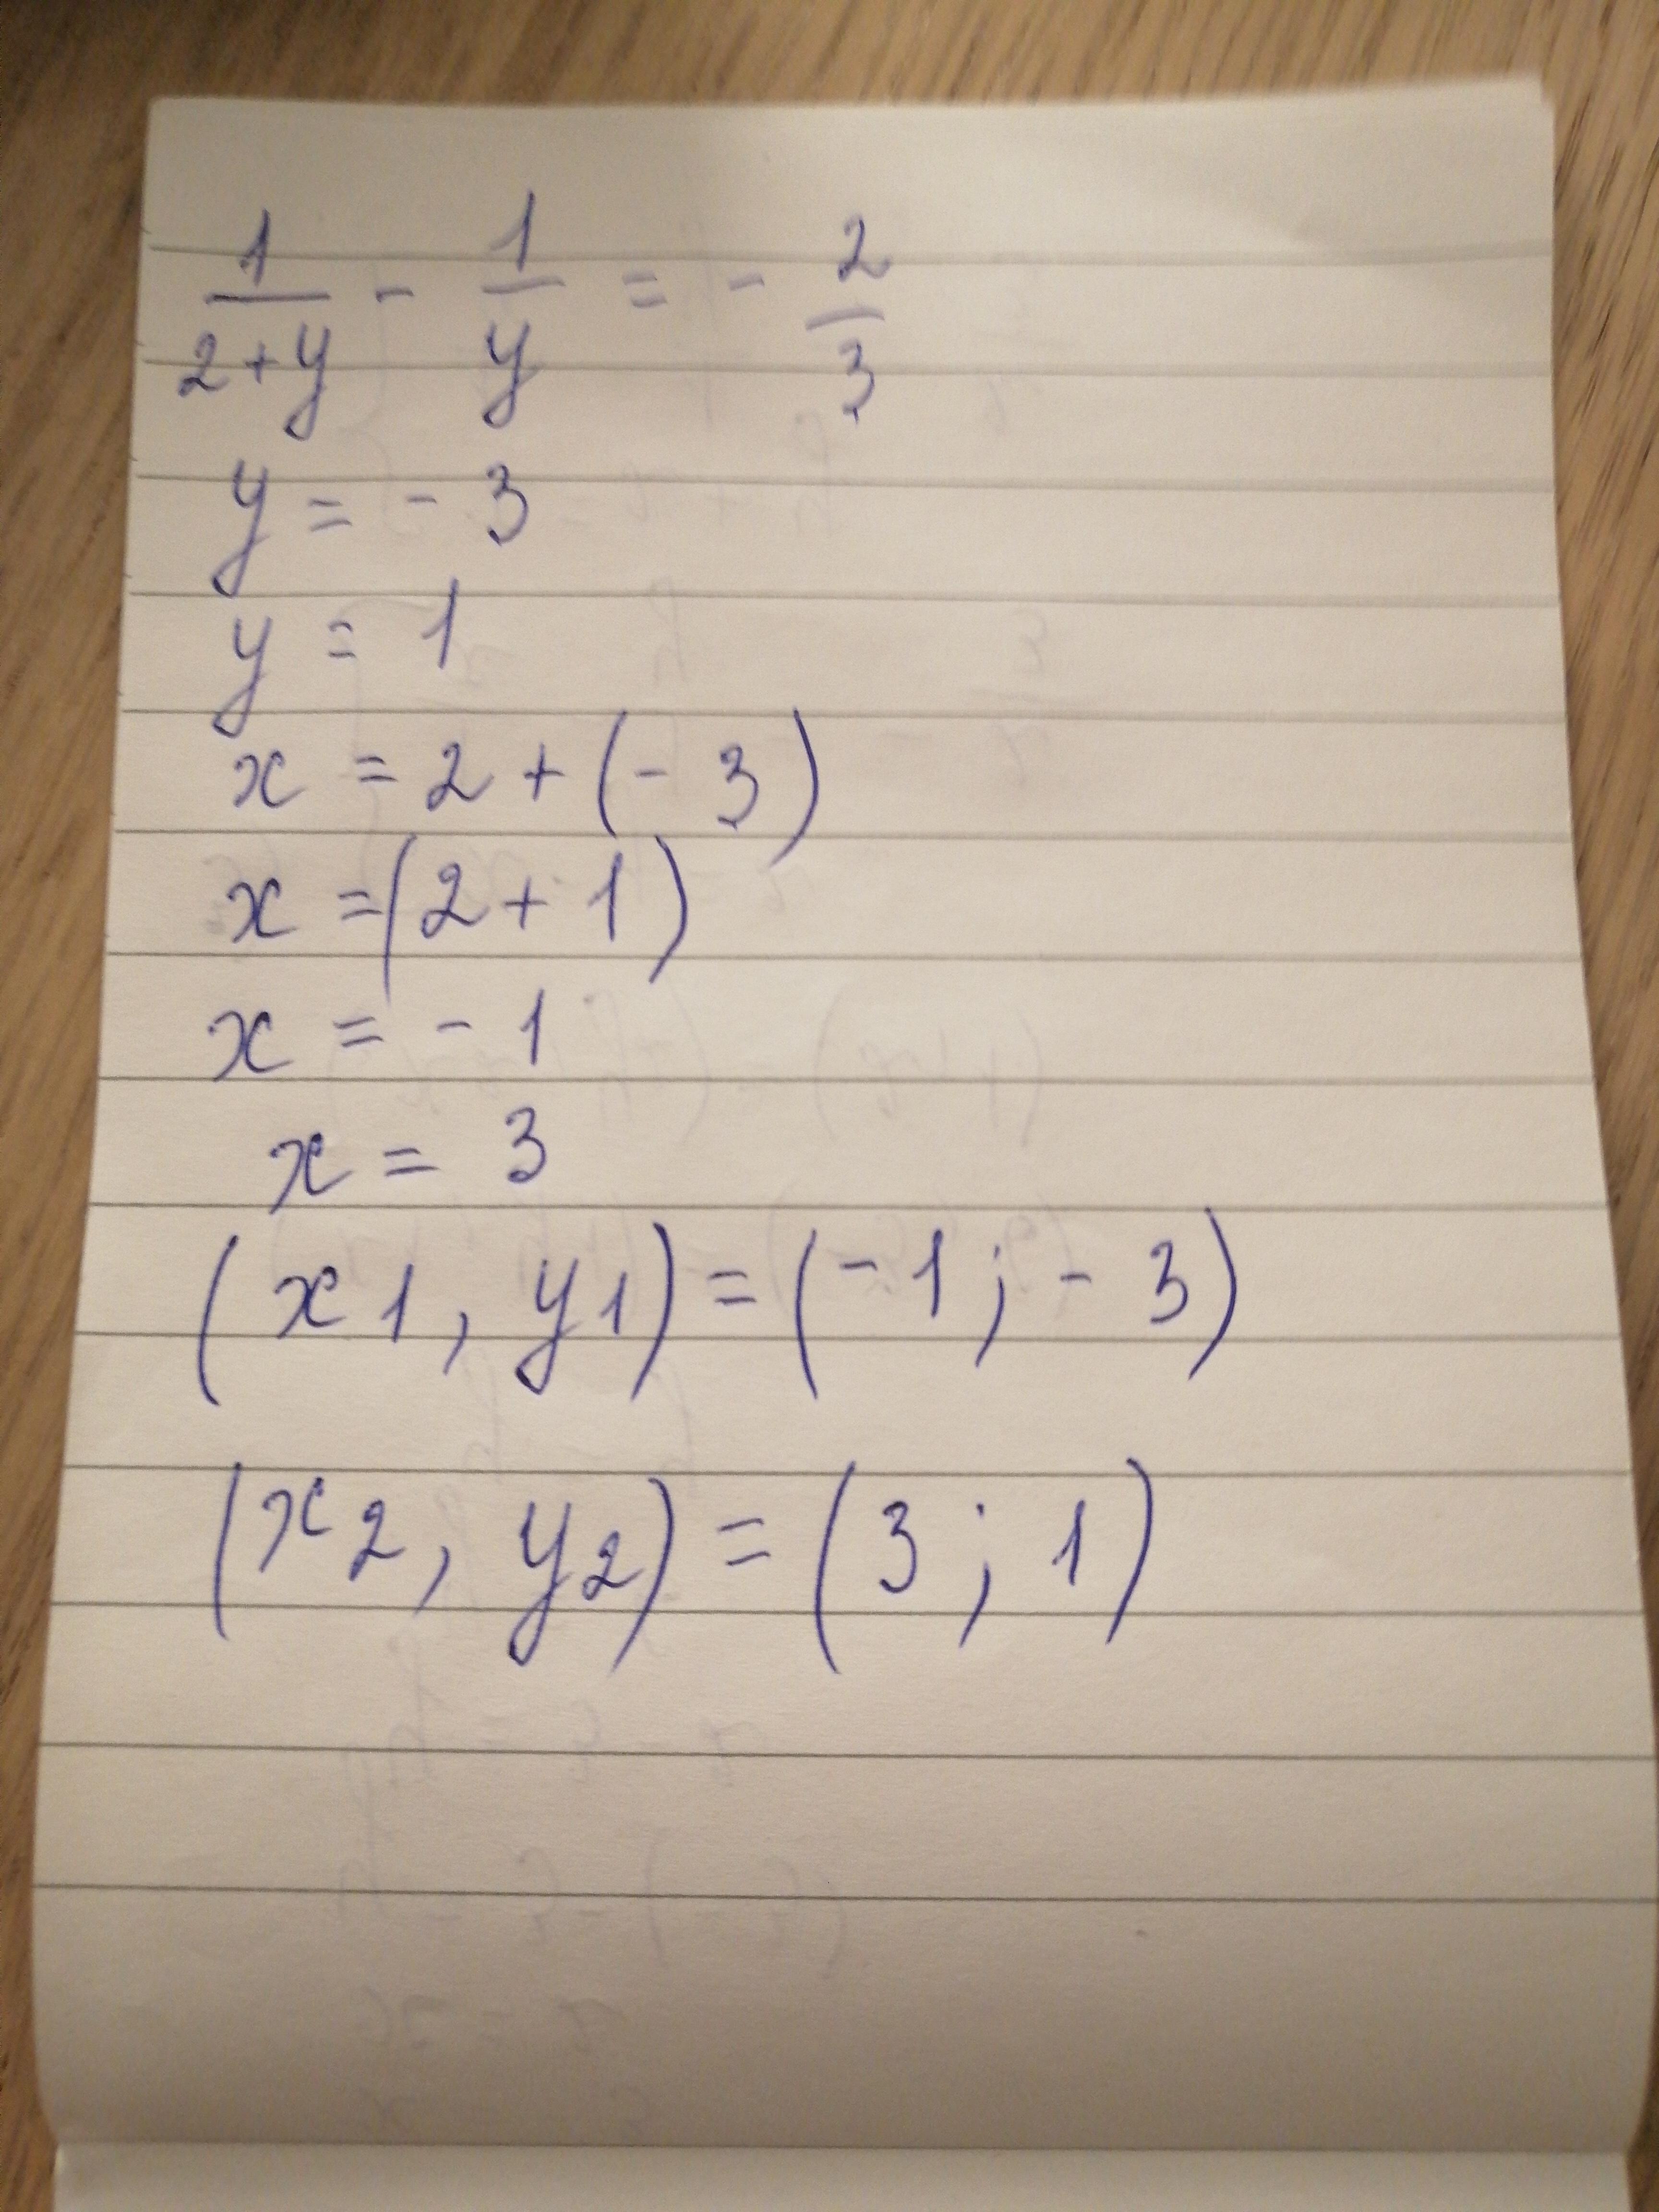 1/(2+y) - 1/y = - 2/3
y = - 3
y = 1
x = 2 + (- 3)
x = (2 + 1)
x = - 1
x = 3
(x1, y1) = (-1; - 3)
(x2, y2) = (3; 1)